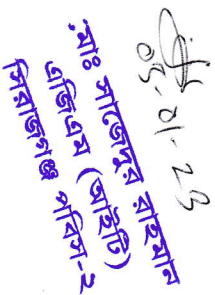 ৩০-০১-২৩
মোঃ সাজেদুর রাহমান
এজিএম (আইটি)
সিরাজগঞ্জ পবিস-২